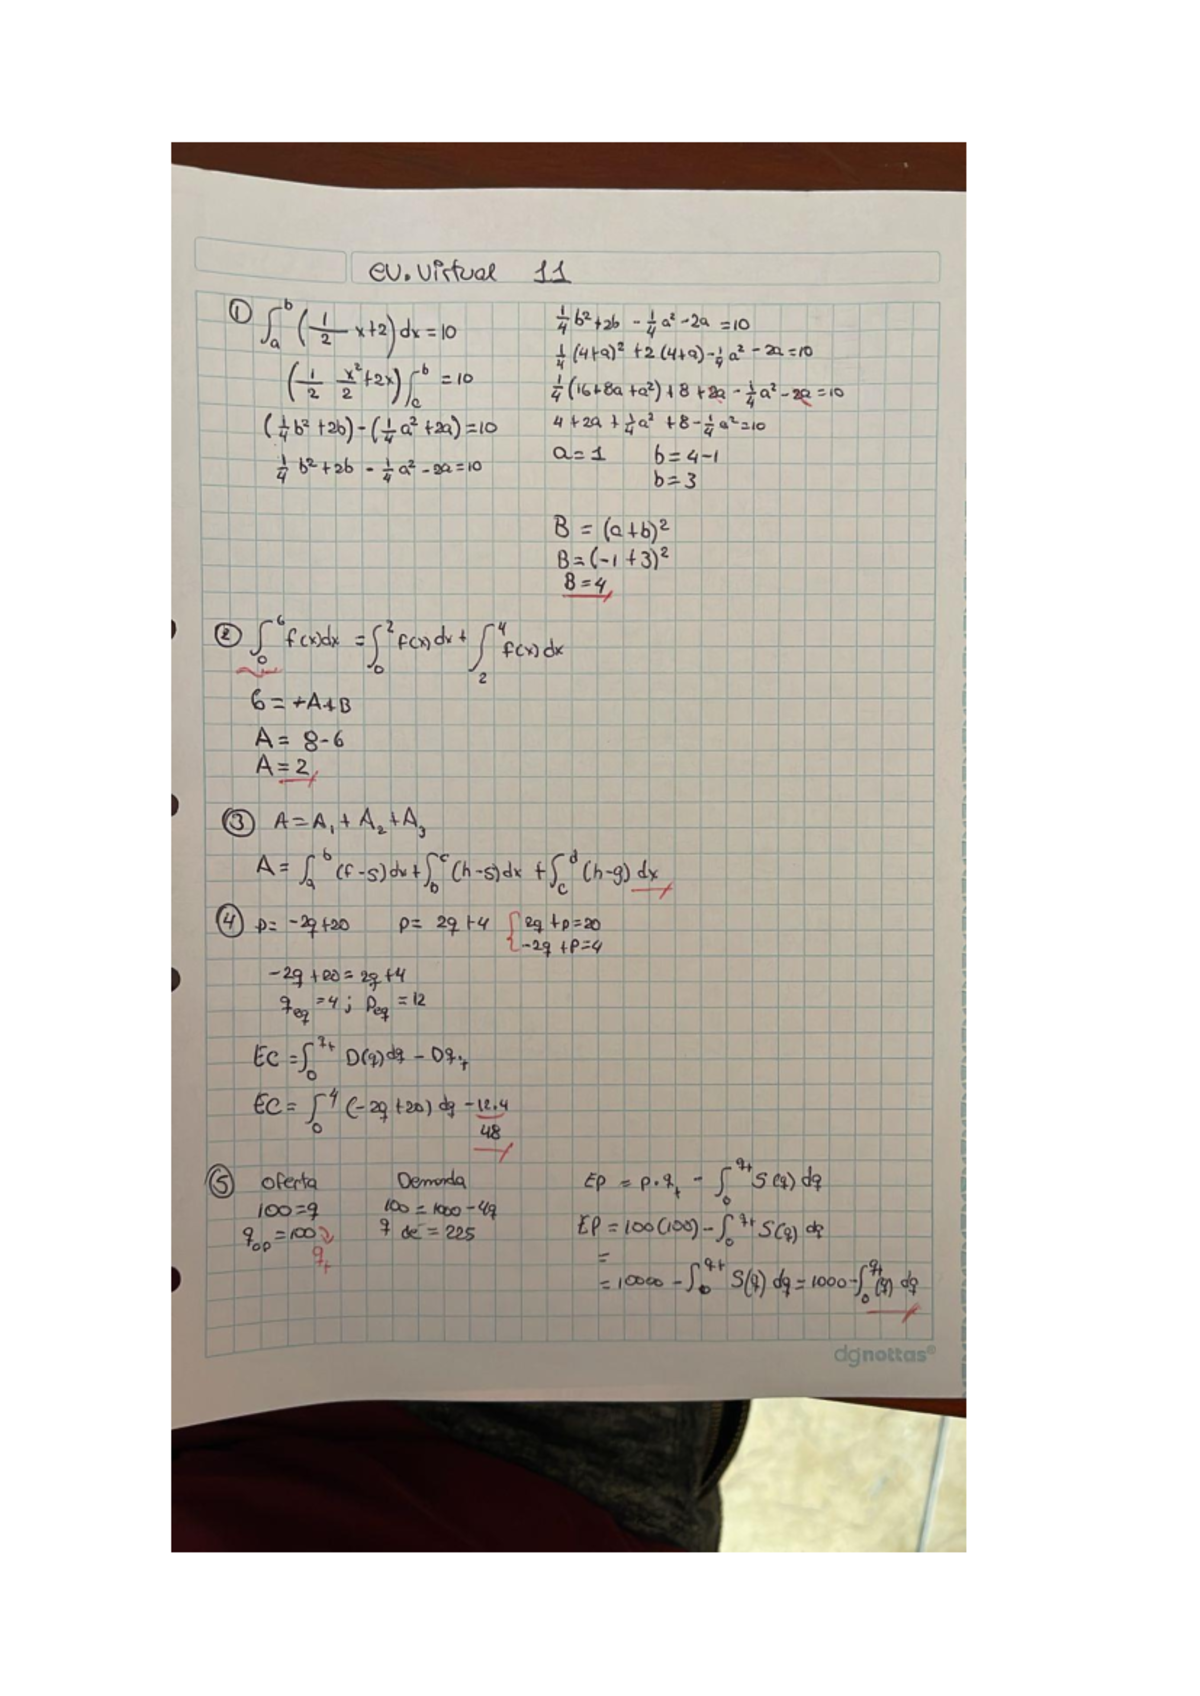 ev. virtual 11
① ∫_a^b (1/2 x+2) dx = 10
(1/2 x²/2 +2x) ∫_c^b = 10
(1/4 b² +2b) - (1/4 a² +2a) = 10
1/4 b² + 2b - 1/4 a² - 2a = 10
1/4 b² + 2b - 1/4 a² - 2a = 10
1/4 (4+a)² + 2 (4+a) - 1/4 a² - 2a = 10
1/4 (16+8a+a²) + 8 + 2a - 1/4 a² - 2a = 10
4 + 2a + 1/4 a² + 8 - 1/4 a² = 10
a = 1 b = 4-1
b = 3
B = (a+b)²
B = (-1+3)²
B = 4
② ∫_0^6 f(x)dx = ∫_0^2 f(x)dx + ∫_2^4 f(x)dx
6 = +A+B
A = 8-6
A = 2
③ A = A₁ + A₂ + A₃
A = ∫_a^b (f-s)dx + ∫_b^c (h-s)dx + ∫_c^d (h-g) dx
④ p = -2q+20 p = 2q+4 { 2q + p = 20
-2q + p = 4
-2q + 20 = 2q + 4
q_eq = 4 ; p_eq = 12
EC = ∫_0^qt D(q)dq - Dq_t
EC = ∫_0^4 (-2q+20) dq - 12.4
48
⑤ Oferta Demanda
100 = q 100 = 1000-4q
q_op = 100 q de = 225
q_t
EP = p.q_t - ∫_0^qt S(q) dq
EP = 100(100) - ∫_0^qt S(q) dq
=
= 10000 - ∫_0^qt S(q) dq = 1000 - ∫_0^qt (q) dq
dgnottas®